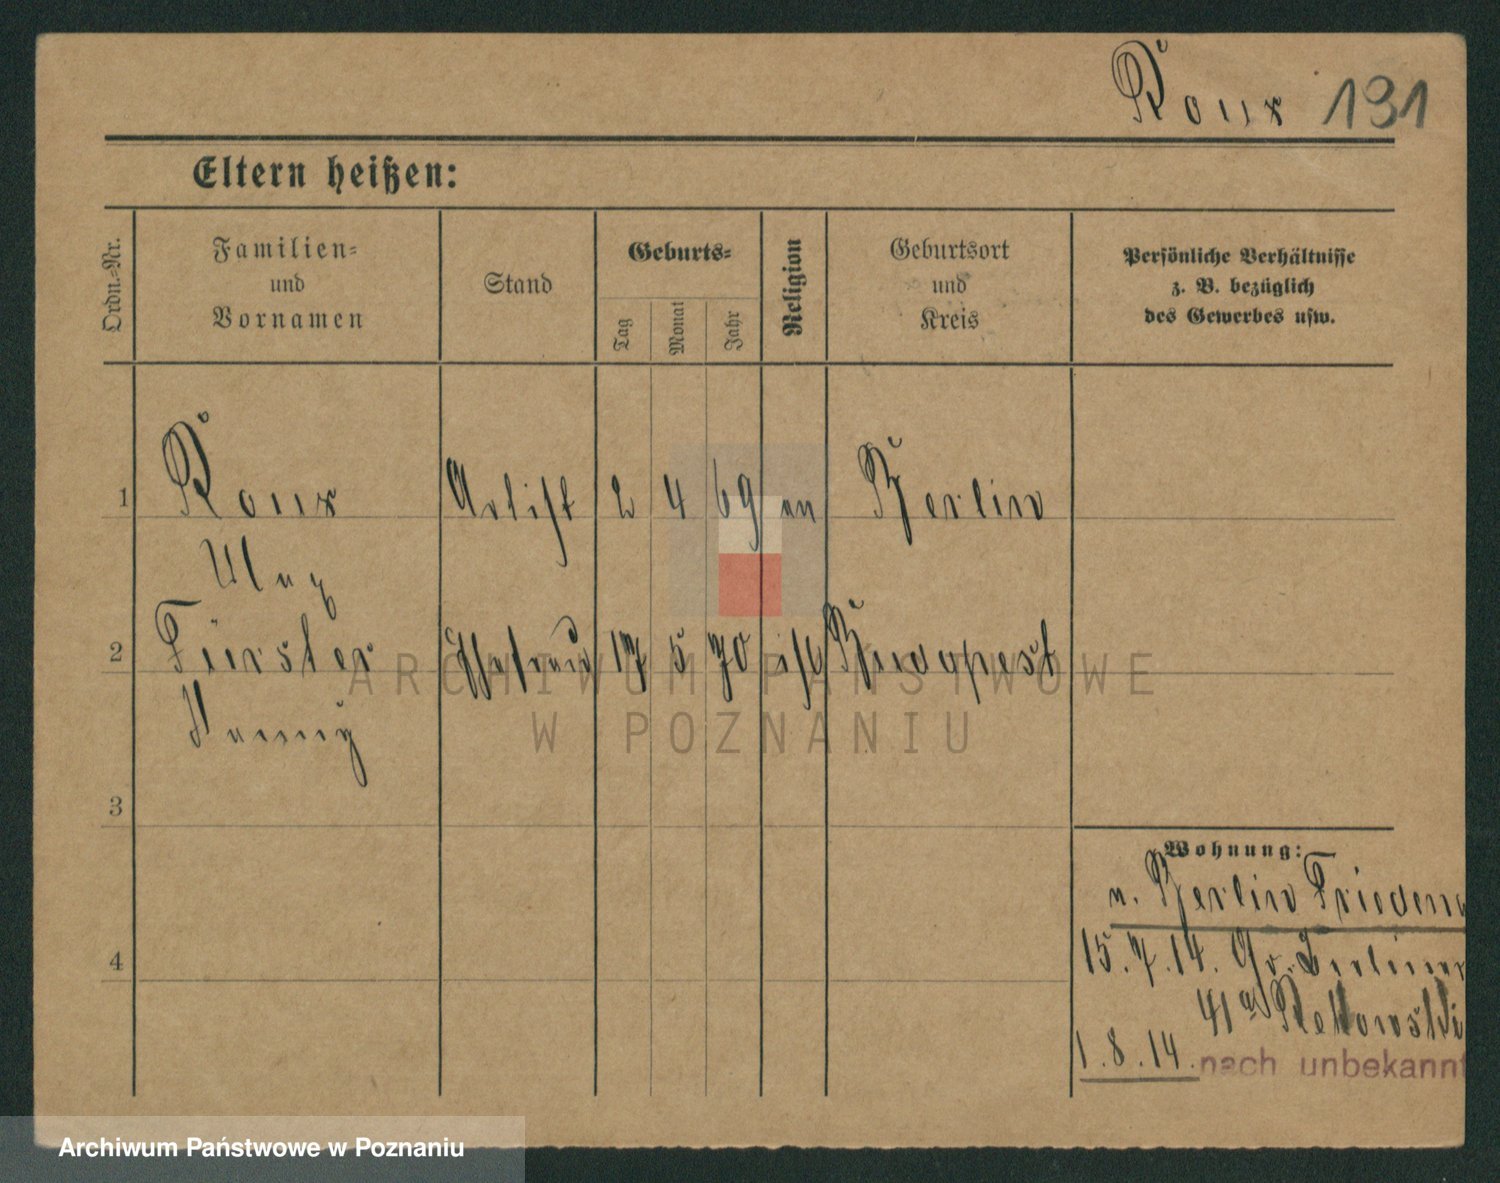 Roux 191
Eltern heißen:
Ordn.-Nr.
Familien-
und
Vornamen
Stand
Geburts-
Tag
Monat
Jahr
Religion
Geburtsort
und
Kreis
Persönliche Verhältnisse
z. B. bezüglich
des Gewerbes usw.
1 Roux Artist 2 4 69 ev Berlin
Max
2 Fürster Ehefrau 17 5 70 isr Budapest
ARCHIWUM PAŃSTWOWE
W POZNANIU
3
4
Wohnung:
n. Berlin Friedena
15.7.14. Gr. Berliner
41a
1.8.14. nach unbekannt
Archiwum Państwowe w Poznaniu